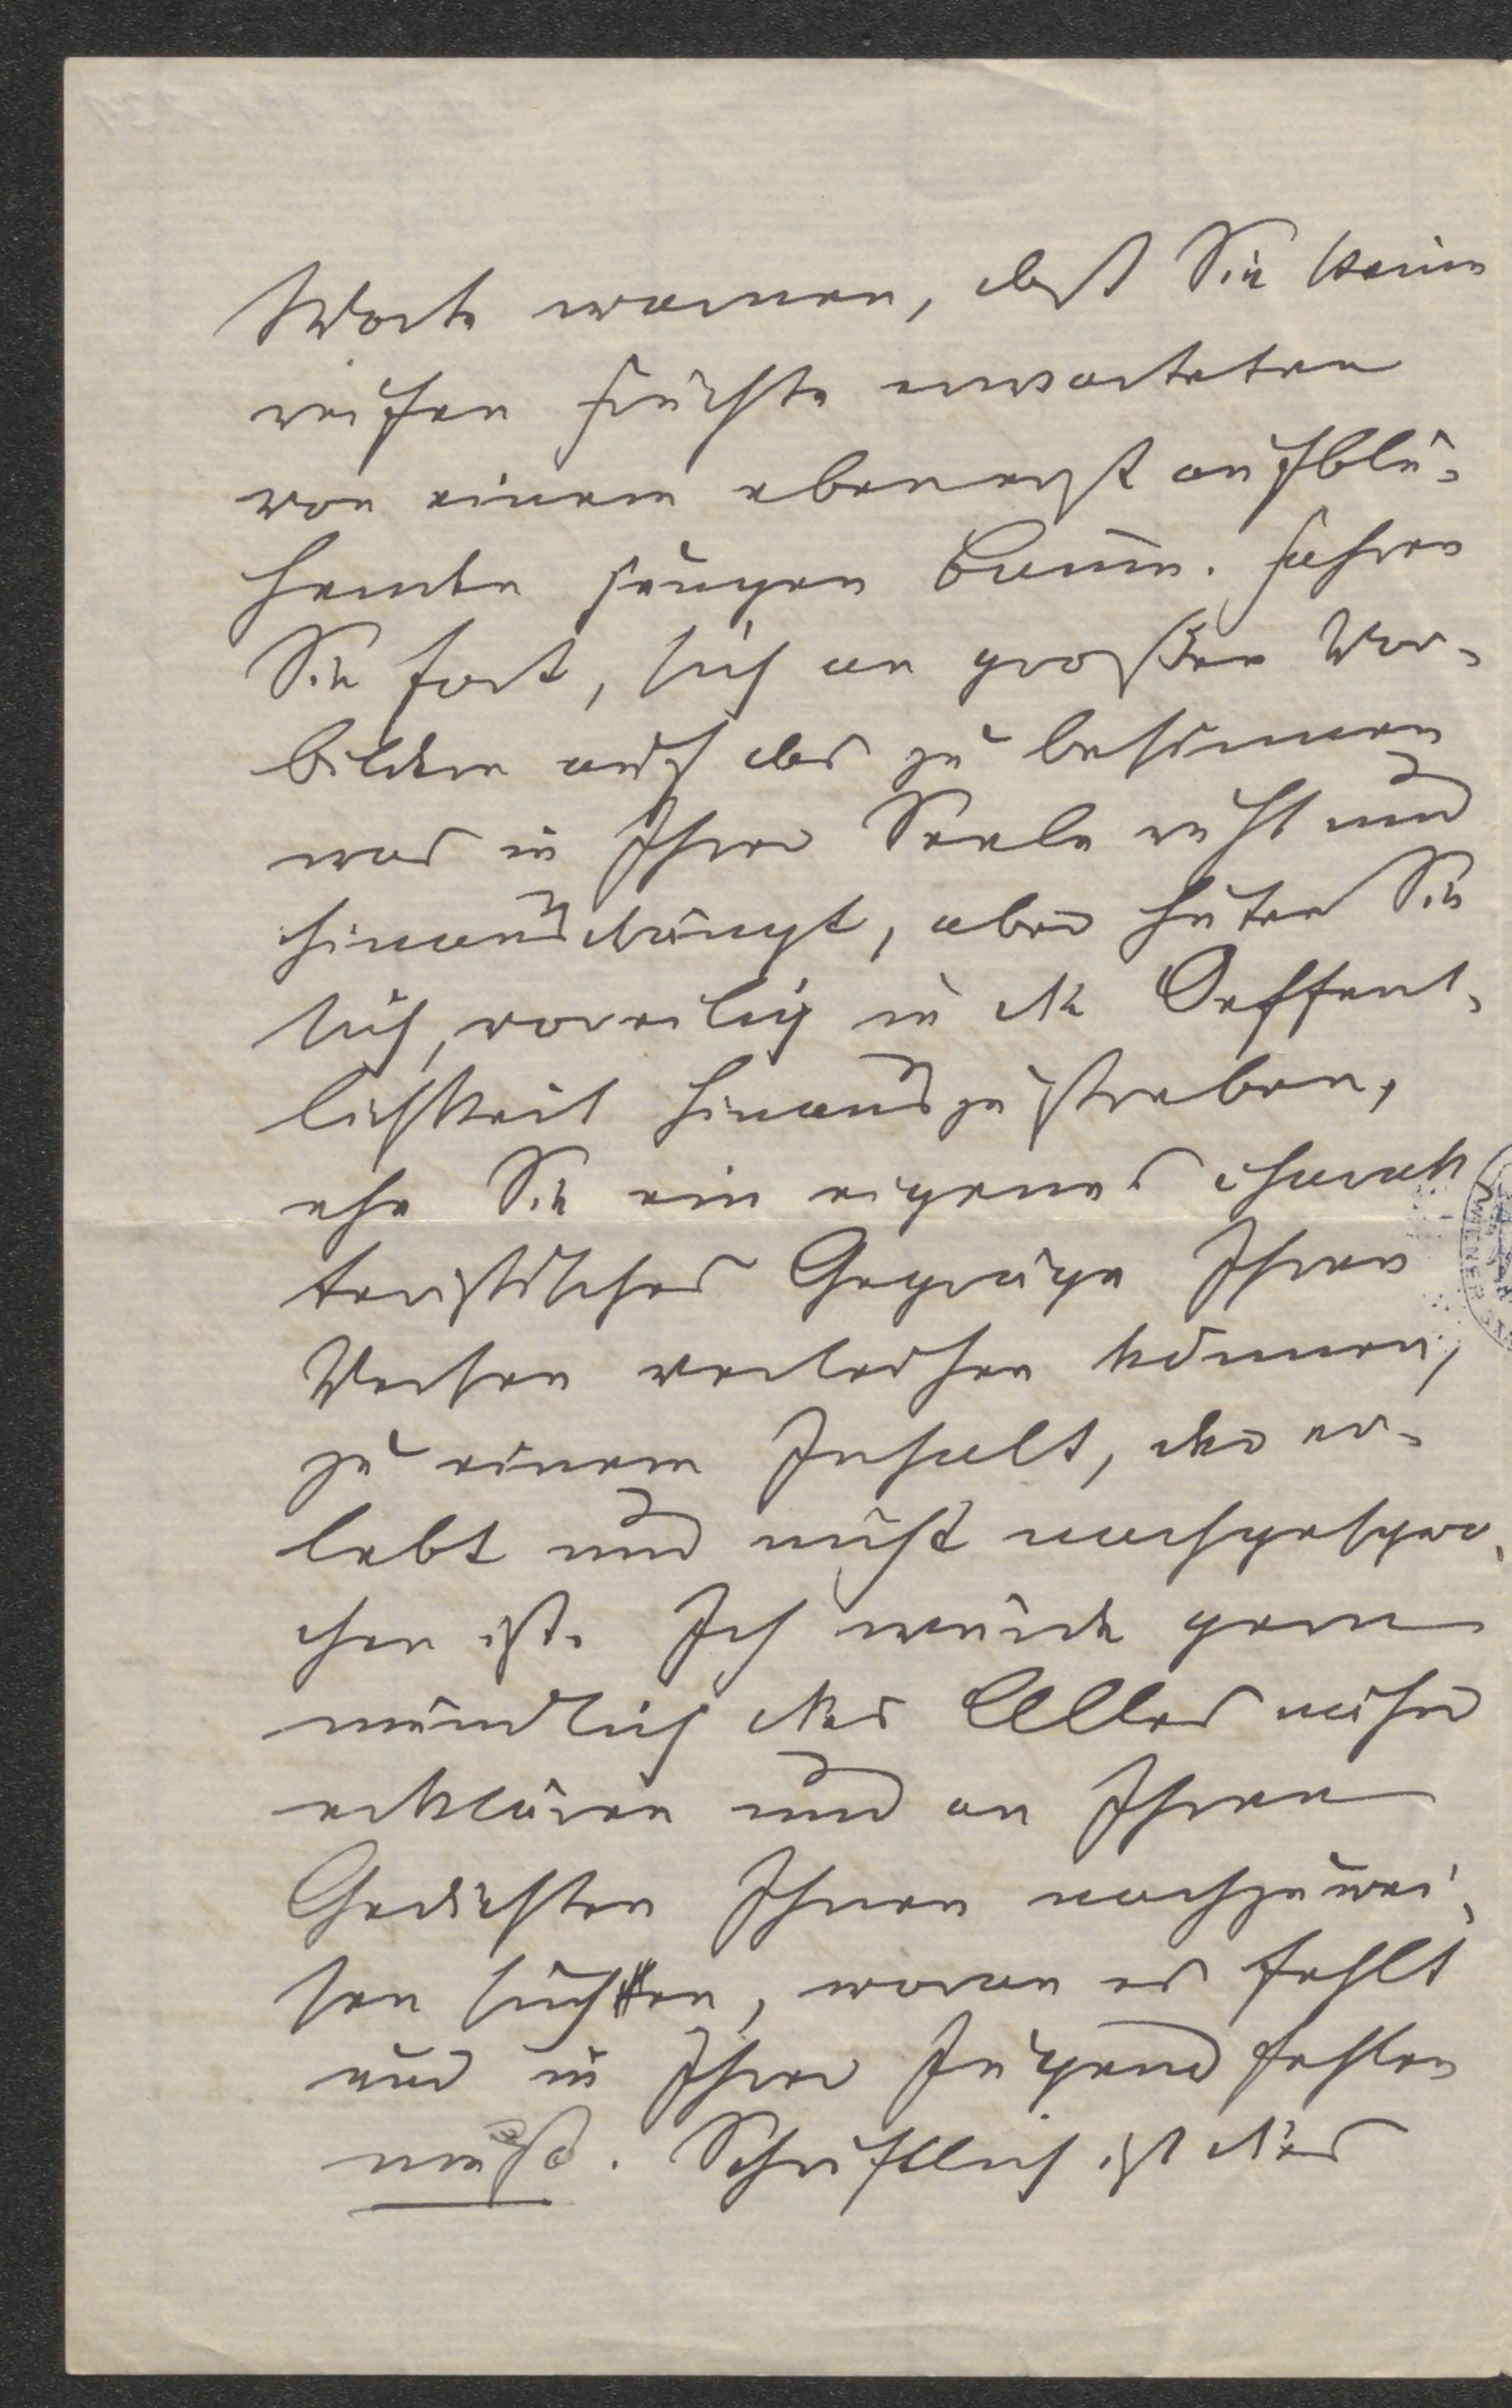 Worte warnen, daß Sie keine
reifen Früchte erwarteten
von einem ebenerst aufblü-
henden jungen Baum. Fahren
Sie fort, sich an großen Vor-
bildern auf das zu besinnen
was in Ihrer Seele ruht und
hinausdrängt, aber hüten Sie
sich, voreilig in die Oeffent-
lichkeit hinauszustreben,
ehe Sie ein eigenes charak
teristisches Gepräge Ihren
Versen verleihen können,
zu einem Inhalt, der er-
lebt und nicht nachgespro-
chen ist. Ich würde gern
mündlich dies Alles näher
erklären und an Ihren
Gedichten Ihnen nachzuwei-
sen suchen, woran es fehlt
und in Ihrer Jugend fehlen
muß. Schriftlich ist dies
WIENER